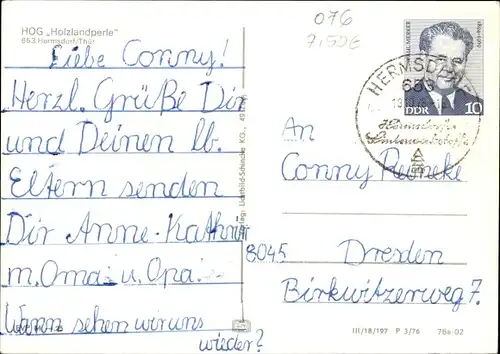 HOG „Holzlandperle"
653 Hermsdorf/Thür
Liebe Conny!
Herzl. Grüße Dir
und Deinen lb.
Eltern senden
Dir Anne-Kathrin
m. Oma u. Opa.
Wann sehen wir uns
wieder?
076
7,50€
HERMSDORF
653
DDR
10
An
Conny Reineke
8045 Dresden
Birkwitzerweg 7.
III/18/197 P 3/76 76a-02